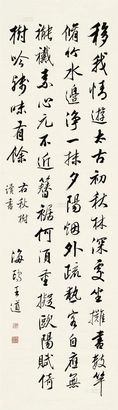 移我情遊太古初秋林深處坐攤書數竿
脩竹水邊淨一抹夕陽烟外疏熱客自應無
褦襶素心元不近簪裾何當重擬歐陽賦倚
樹吟殘味有餘
右秋樹
讀書
海 王道